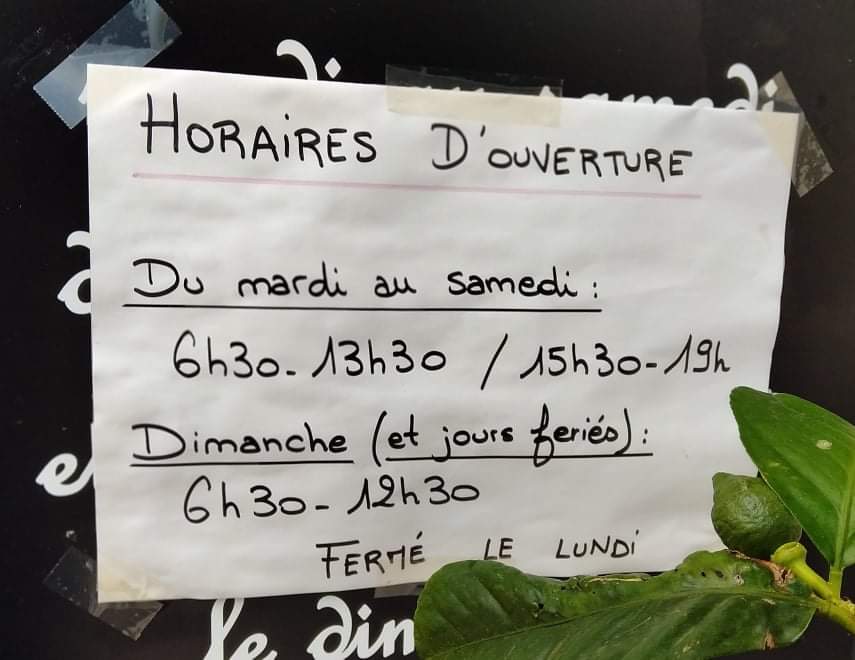 HORAIRES D'OUVERTURE
Du mardi au samedi :
6h30-13h30 / 15h30-19h
Dimanche (et jours feriés) :
6h30-12h30
FERMÉ LE LUNDI
le dim